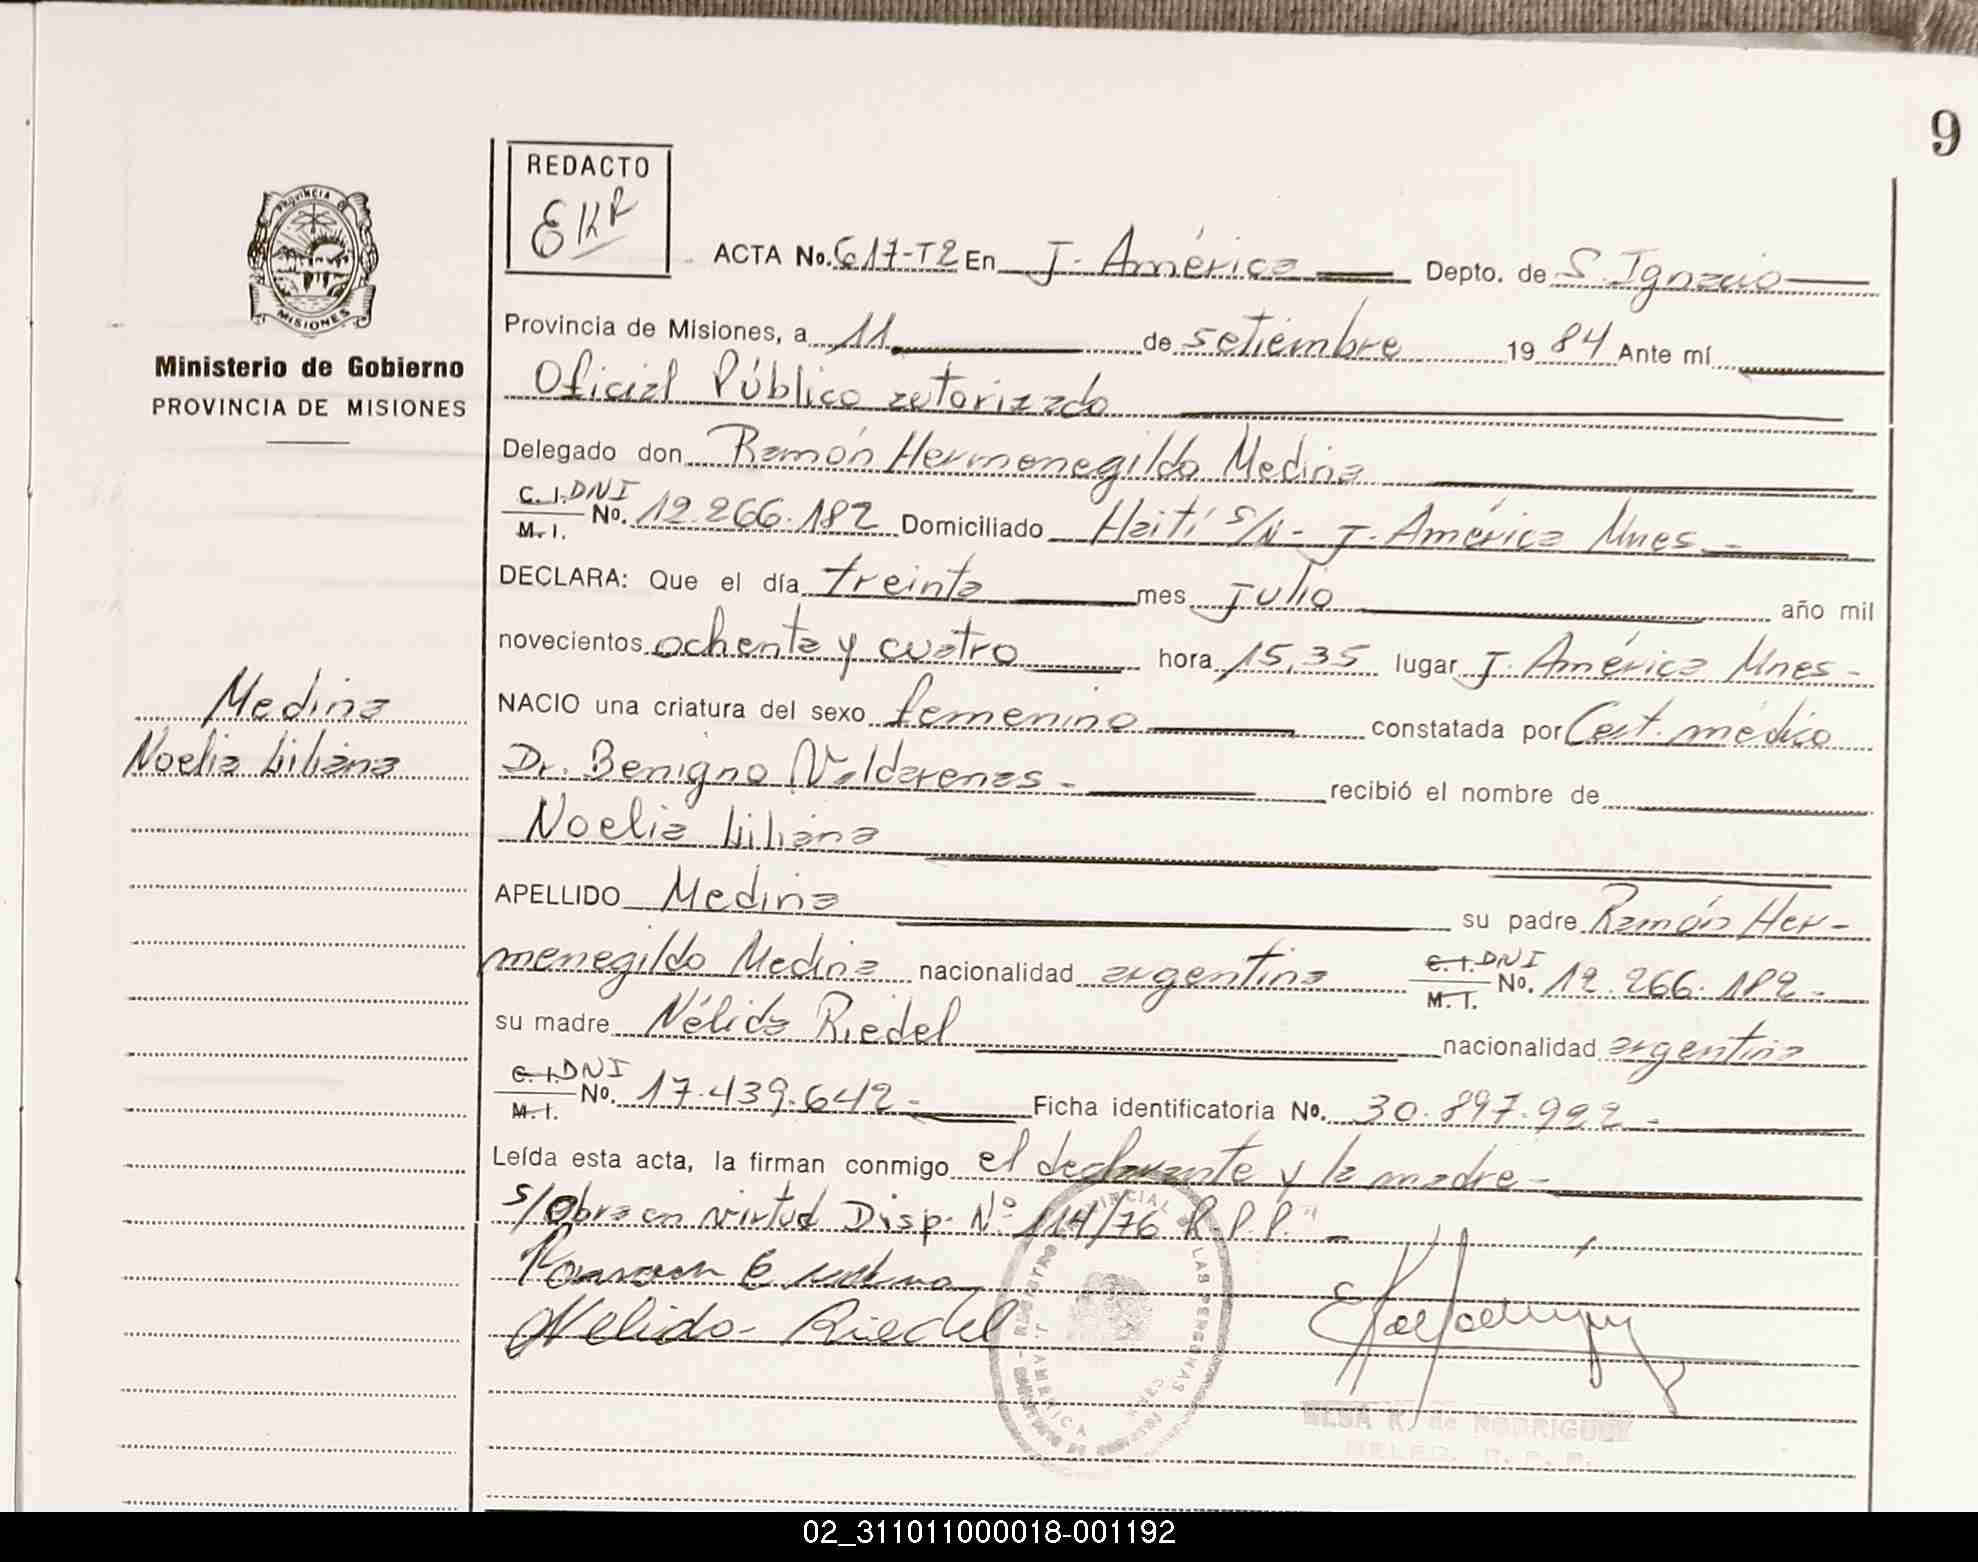 9
REDACTO
EKR
PROVINCIA DE
MISIONES
Ministerio de Gobierno
PROVINCIA DE MISIONES
Medina
Noelia Liliana
ACTA No. 617-T2 En J. América Depto. de S. Ignacio
Provincia de Misiones, a 11 de setiembre 1984 Ante mí
Oficial Público autorizado
Delegado don Ramón Hermenegildo Medina
C. I. DNI
M. I. No. 12.266.182 Domiciliado Haití s/N - J. América Mnes -
DECLARA: Que el día treinta mes julio año mil
novecientos ochenta y cuatro hora 15,35 lugar J. América Mnes -
NACIO una criatura del sexo femenino constatada por Cert. médico
Dr. Benigno Valdarenas - recibió el nombre de
Noelia Liliana
APELLIDO Medina su padre Ramón Her-
menegildo Medina nacionalidad argentina C. I. DNI M. I. No. 12.266.182 -
su madre Nélida Riedel nacionalidad argentina
C. I. DNI
M. I. No. 17.439.642 - Ficha identificatoria No. 30.897.922 -
Leída esta acta, la firman conmigo el declarante y la madre -
s/Obra en virtud Disp. Nº 114/76 R.P.P." -
Nelida Riedel
ELSA K. de RODRIGUEZ
DELEG. R. P. P.
02_311011000018-001192